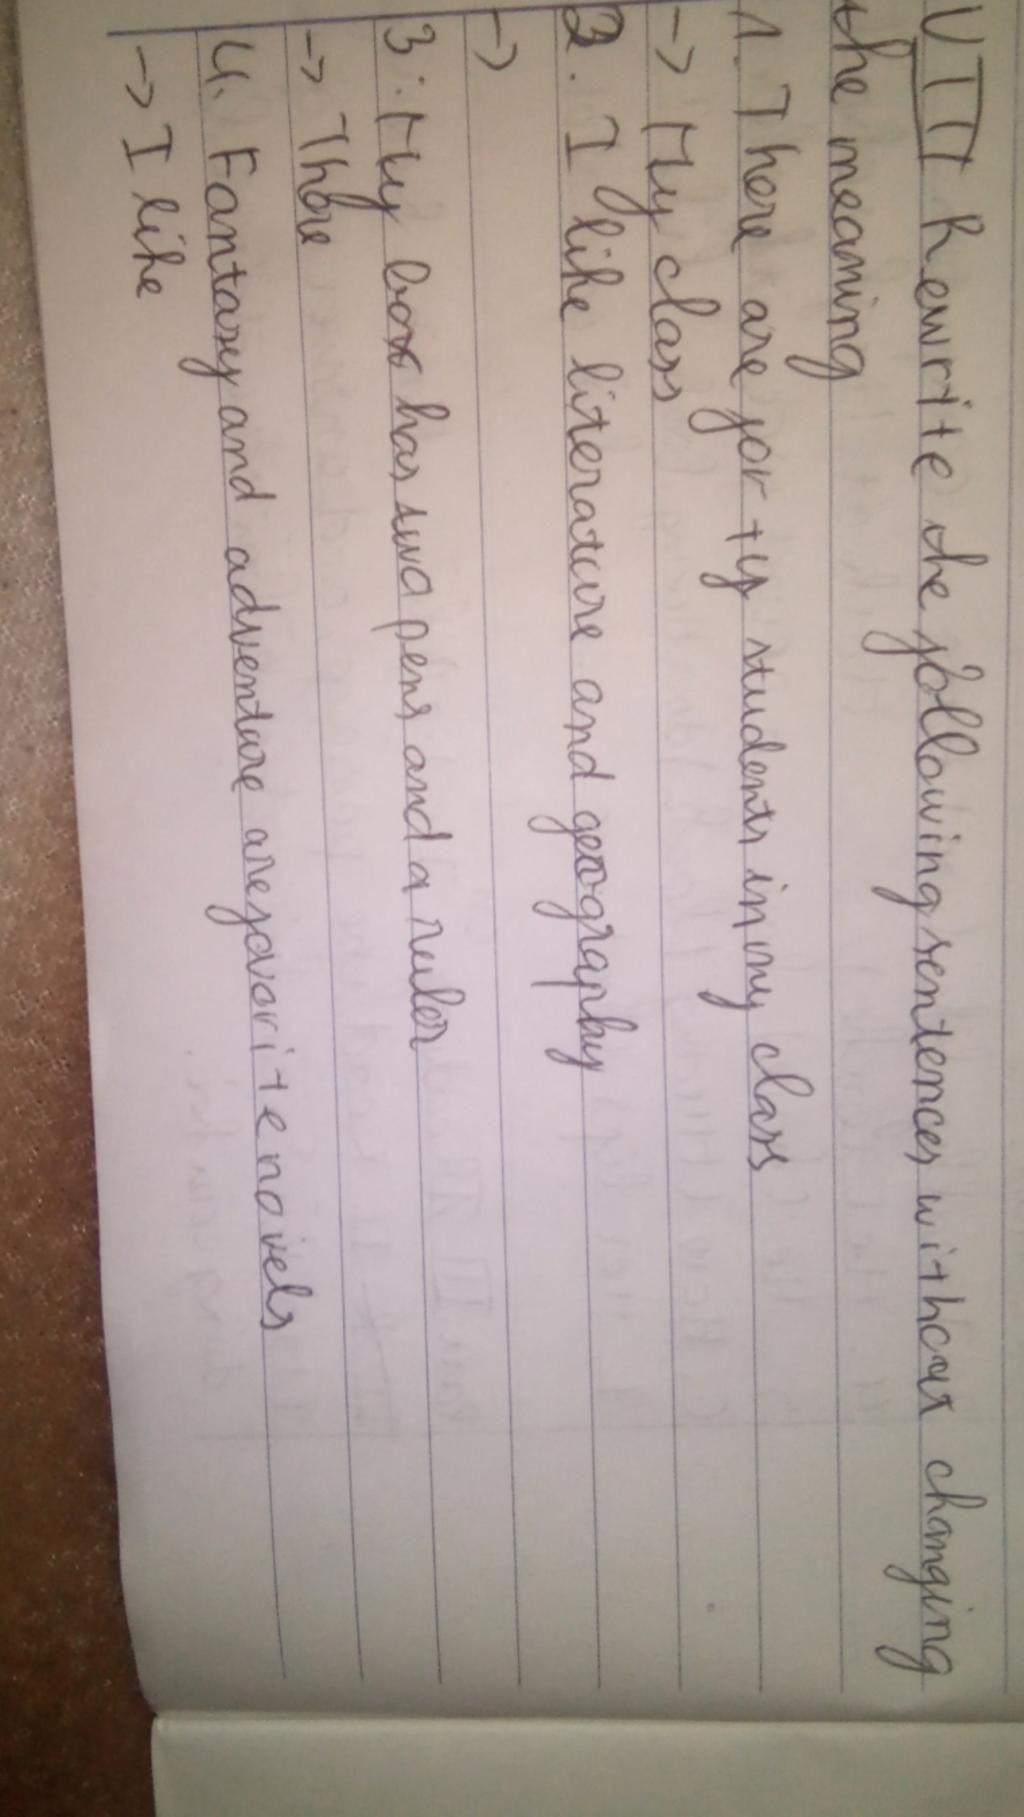 VIII Rewrite the following sentences without changing
the meaning
1. There are forty students in my class
-> My class
2. I like literature and geography
->
3. My box has two pens and a ruler
-> There
4. Fantasy and adventure are favorite novels
-> I like